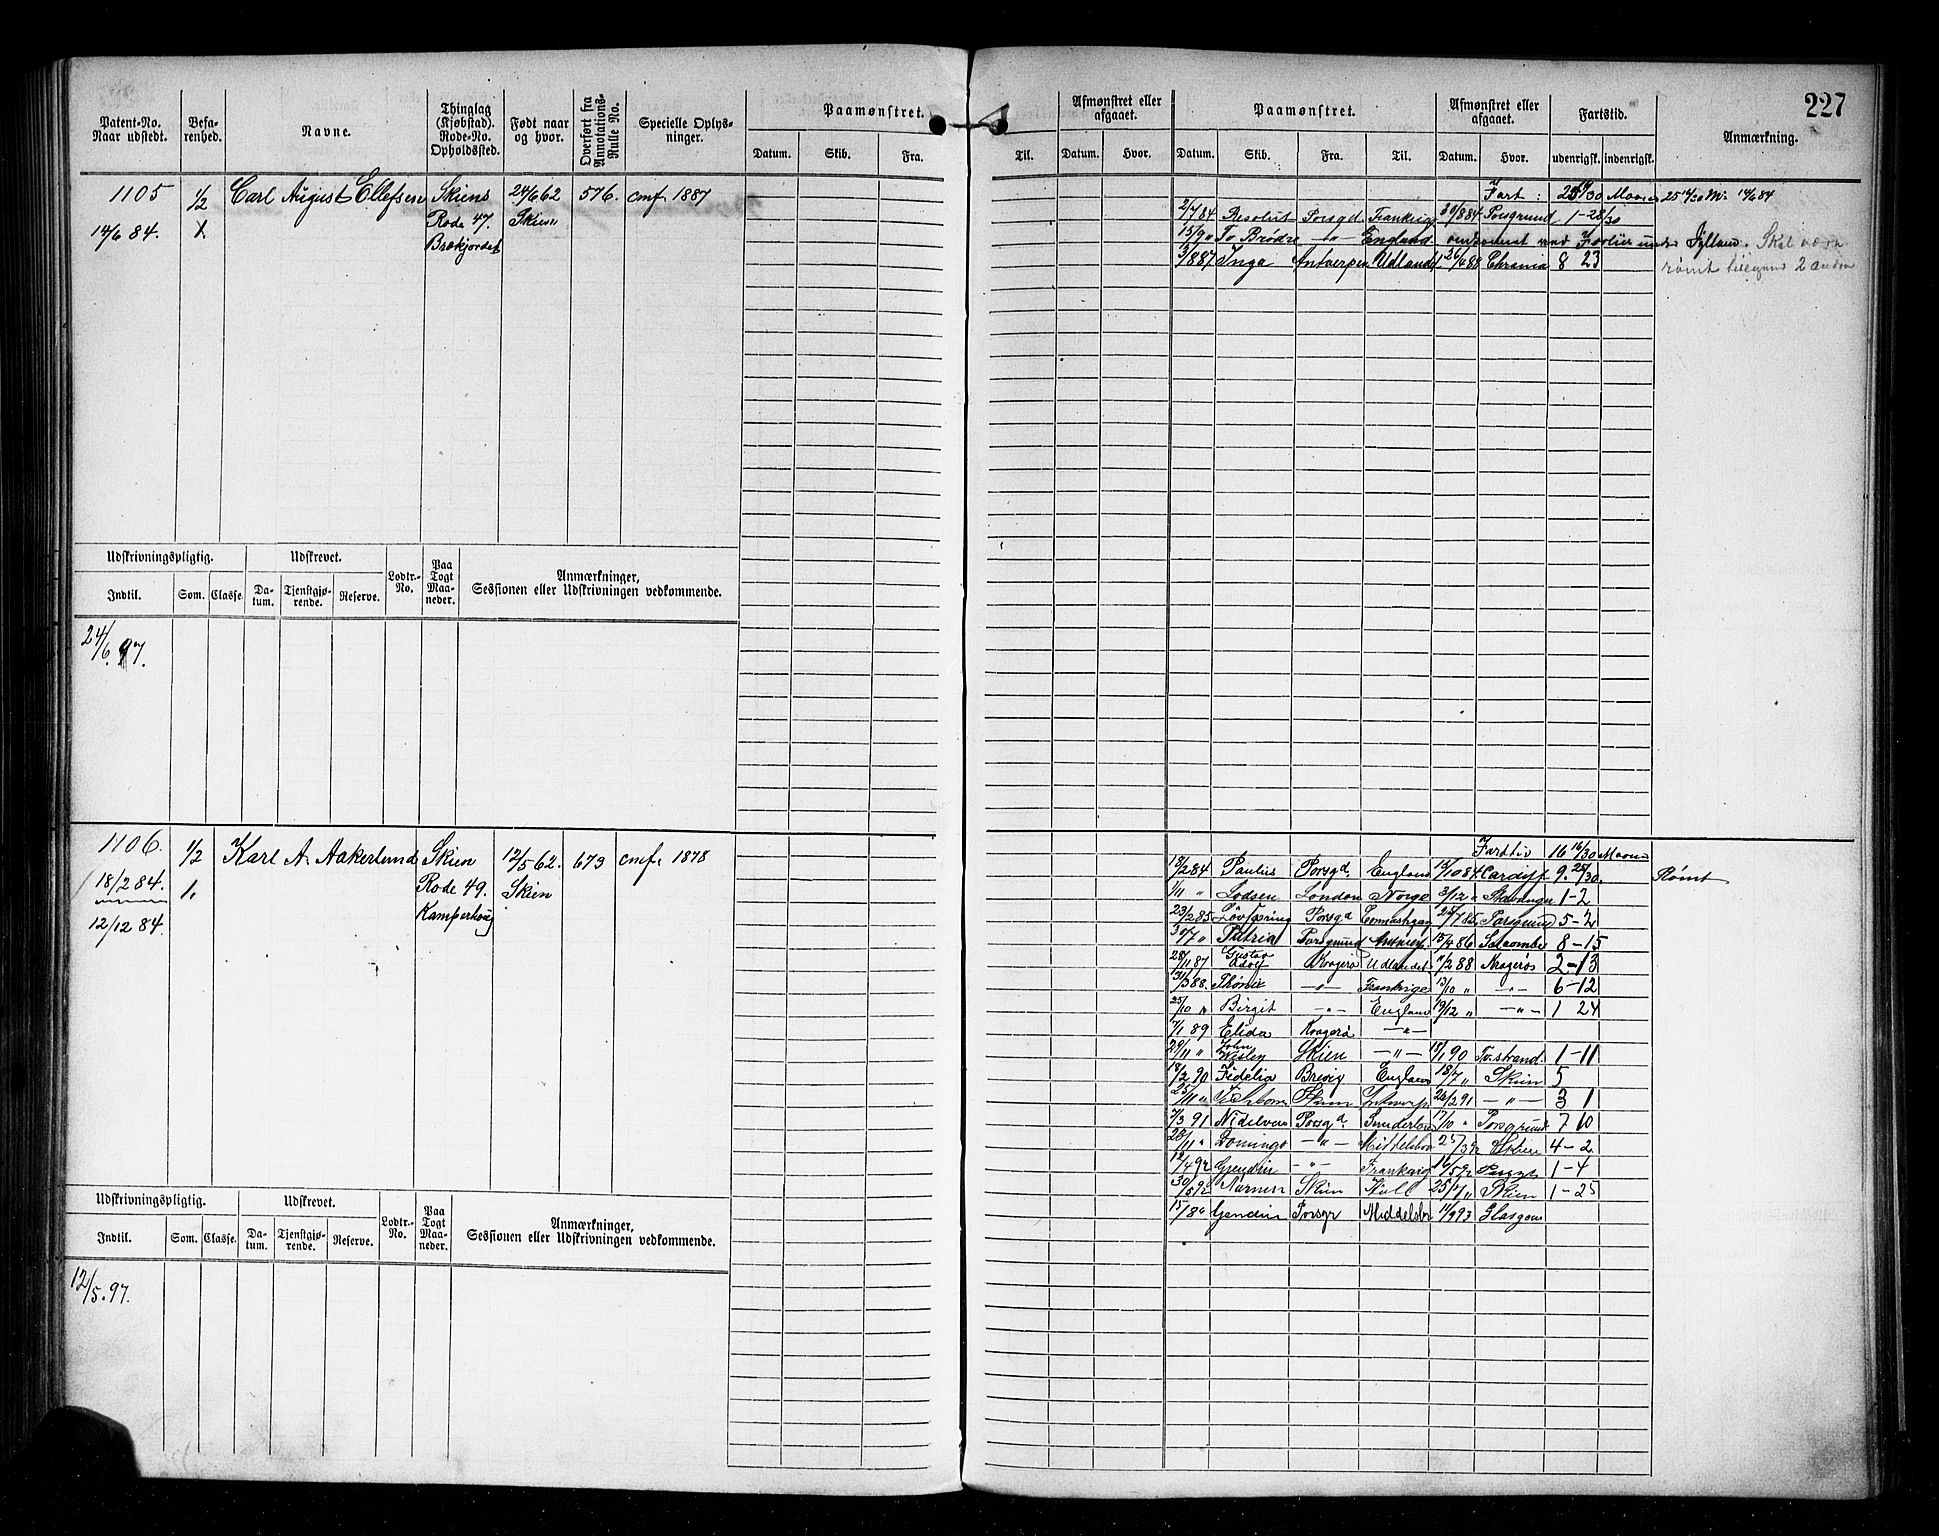 227
Patent-No. Naar udstedt. Befarenhed. Navne. Thinglag (Kjøbstad). Rode-No. Opholdssted. Født naar og hvor. Overført fra Annotations-Rulle No. Specielle Oplysninger. Paamønstret. Afmønstret eller afgaaet. Paamønstret. Afmønstret eller afgaaet. Fartstid. Anmærkning.
Datum. Skib. Fra. Til. Datum. Hvor. Datum. Skib. Fra. Til. Datum. Hvor. udenrigsk. indenrigsk.
1105 1/2 Carl August Ellefsen Skiens 24/6 62 576. cmf 1887
Rode 47. Skien
14/6 84. 1. Brekjordet
Fart:
2/7 84 Resolut Porsgd. Frankrig 30/8 84 Porsgrund 1-28/30
15/9 " To Brødre -"- England. Jylland. Skal være
3/8 87 Inga Antwerpen Udlandet 26/4 88 Chrania 8 23 rømt 2 anden
Udskrivningspligtig. Udskrevet. Lodtr.-No. Paa Togt Maaneder. Anmærkninger, Sessionen eller Udskrivningen vedkommende.
Indtil. Som. Classe. Datum. Tjenstgjørende. Reserve.
24/6. 97.
1106. 1/2 Karl A. Aakerlund Skien 12/5 62. 673 cmf. 1878
18/2 84. 1. Rode 49. Skien
12/12 84. Kamperhoug
Farttid 16 16/30 Maaned
18/2 84 Paulus Porsgd. England 15/10 84 Cardiff 9. 25/30. Rømt
1/11 " Lodsen London Norge 3/12 " Stavanger 1-2
23/2 85 Porsgd 25/7 85 Porsgrund 5-2
30/7 " Patria Porsgrund Antwerp. 15/4 86 8-15
28/11 87 Gustav Adolf Kragerø Udlandet 11/2 88 Kragerø 2-13
31/3 88. -"- Frankrige 13/10 " -"- 6-12
25/10 " Birgit -"- England 19/12 " -"- 1 24
7/1 89 Elida Kragerø -"-
29/11 " John Wesley Skien -"- 18/1 90 Tv.strand. 1-11
18/2 90 Fidelia Brevig England 18/7 " Skien 5
25/11 " Skien Antwerp. 26/2 91 -"- 3 1
7/3 91 Nidelven Porsgd. Sunderland 17/10 " Porsgrund 7 10
28/11 " Domingo -"- Middelsbro 25/3 92 Skien 4-2
12/4 92 Grendin -"- Frankrig 16/5 92 Porsgr. 1-4
30/5 92 Skien Hull 25/7 " Skien 1-25
15/8 " Porsgr Middelsbr 11/9 93 Glasgow
Udskrivningspligtig. Udskrevet. Lodtr.-No. Paa Togt Maaneder. Anmærkninger, Sessionen eller Udskrivningen vedkommende.
Indtil. Som. Classe. Datum. Tjenstgjørende. Reserve.
12/5. 97.